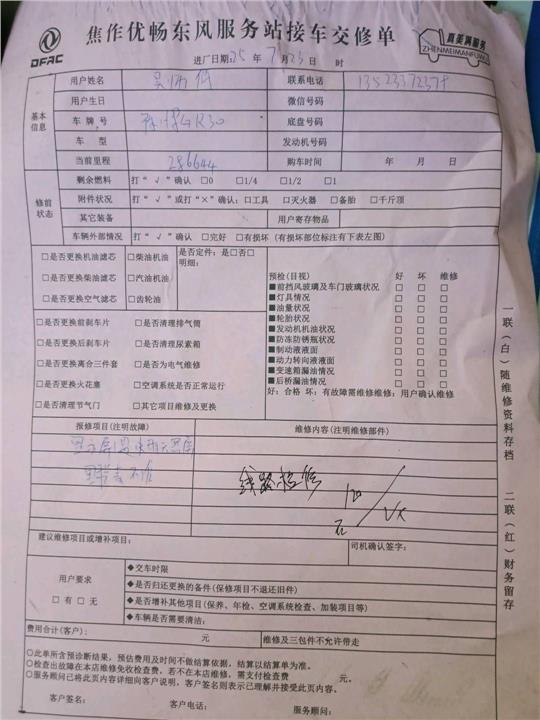 DFAC
焦作优畅东风服务站接车交修单
真美满服务
ZHENMEIMANFUWU
进厂日期:25 年 7 月 23 日 时
用户姓名
联系电话
基本信息
用户生日 微信号码
车牌号 底盘号码
车型 发动机号码
当前里程 286644 购车时间 年 月 日
修前状态
剩余燃料 打“√”确认 □0 □1/4 □1/2 □1
附件状况 打“√”或打“×”确认:口工具 □灭火器 □备胎 □千斤顶
其它装备 用户寄存物品
车辆外部情况 打“√”确认 □完好 □有损坏(有损坏部位标注有下表左图)
□是否更换机油滤芯 □柴油机油
□是否更换柴油滤芯 □汽油机油
□是否更换空气滤芯 □齿轮油
是否定件:是□否□
明细:
□是否更换前刹车片 □是否清理排气筒
□是否更换后刹车片 □是否清理尿素箱
□是否更换离合三件套 □是否为电气维修
□是否更换火花塞 □空调系统是否正常运行
□是否清理节气门 □其它项目维修及更换
预检(目视) 好 坏 维修
■前挡风玻璃及车门玻璃状况 □ □ □
■灯具情况 □ □ □
■油量状况 □ □ □
■轮胎状况 □ □ □
■发动机机油状况 □ □ □
■防冻防锈瓶状况 □ □ □
■制动液液面 □ □ □
■动力转向液液面 □ □ □
■变速箱漏油情况 □ □ □
■后桥漏油情况 □ □ □
好:合格 坏:有故障需维修维修:用户确认维修
报修项目(注明故障) 维修内容(注明维修部件)
线路检修
120
建议维修项目或增补项目: 司机确认签字:
用户要求
□有□无
◆交车时限
◆是否归还更换的备件(保修项目不退还旧件)
◆是否增补其他项目(保养、年检、空调系统检查、加装项目等)
◆车辆是否需要清洁:
费用合计(客户): 元 维修及三包件不允许带走
○此单所含预诊断结果,预估费用及时间不做结算依据,结算以结算单为准。
○检查出故障在本店维修免收检查费,若不在本店维修,需支付检查费 元。
○服务顾问已将此页内容详细向客户说明,客户签名则表示已理解并接受此页内容。
客户签名: 客户电话: 服务顾问:
一联(白)随维修资料存档
二联(红)财务留存